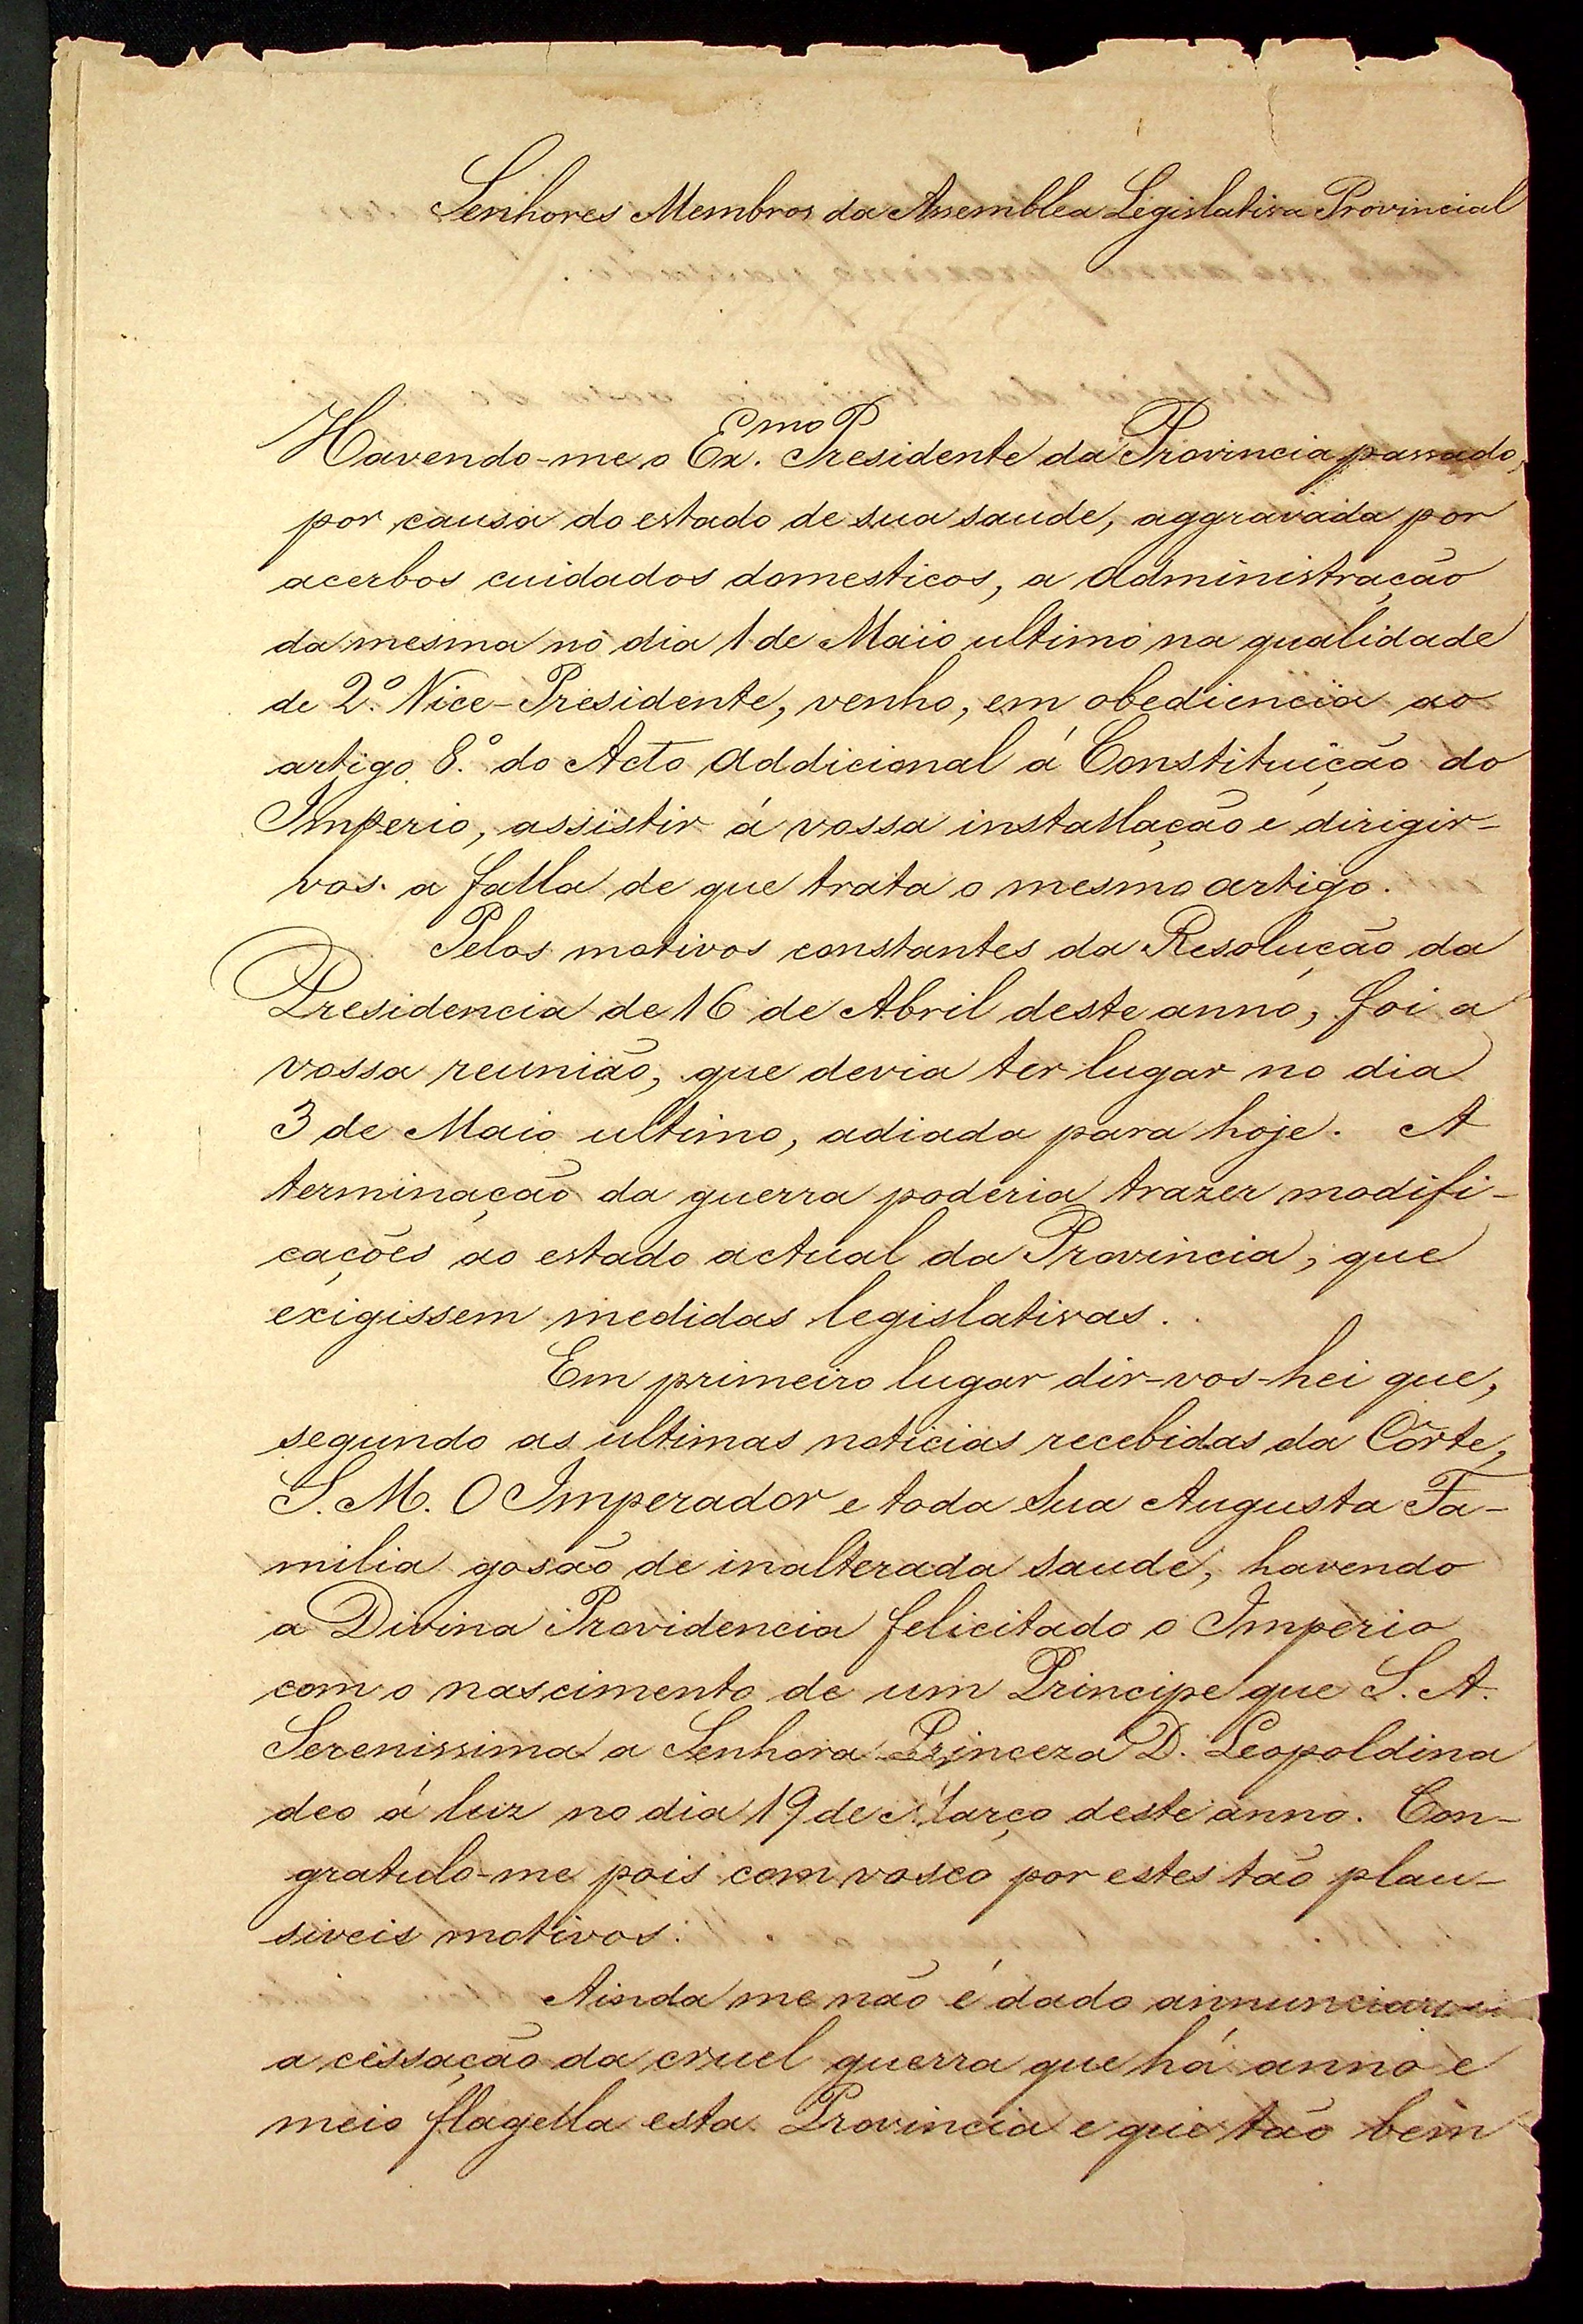 Senhores Membros da Assemblea Legislativa Provincial
Havendo-me o Ex.mo Presidente da Provincia passado,
por causa do estado de sua saude, aggravada por
acerbos cuidados domesticos, a administração
da mesma no dia 1 de Maio ultimo na qualidade
de 2.º Vice-Presidente, venho, em obediencia ao
artigo 8.º do Acto Addicional á Constituição do
Imperio, assistir á vossa installação e dirigir-
vos a falla de que trata o mesmo artigo.
Pelos motivos constantes da Resolução da
Presidencia de 16 de Abril deste anno, foi a
vossa reunião, que devia ter lugar no dia
3 de Maio ultimo, adiada para hoje. A
terminação da guerra poderia trazer modifi-
cações ao estado actual da Provincia, que
exigissem medidas legislativas.
Em primeiro lugar dir-vos-hei que,
segundo as ultimas noticias recebidas da Côrte,
S. M. O Imperador e toda Sua Augusta Fa-
milia gosão de inalterada saude, havendo
a Divina Providencia felicitado o Imperio
com o nascimento de um Principe que S. A.
Serenissima a Senhora Princeza D. Leopoldina
deo á luz no dia 19 de Março deste anno. Con-
gratulo-me pois com vosco por estes tão plau-
siveis motivos.
Ainda me não é dado annunciar
a cessação da cruel guerra que há anno e
meio flagella esta Provincia e que tão bem